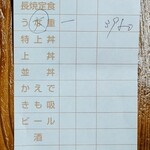 長焼定食
う 屋 一 3950
特上丼
上丼
並丼
かえで
きも吸
ビール
酒